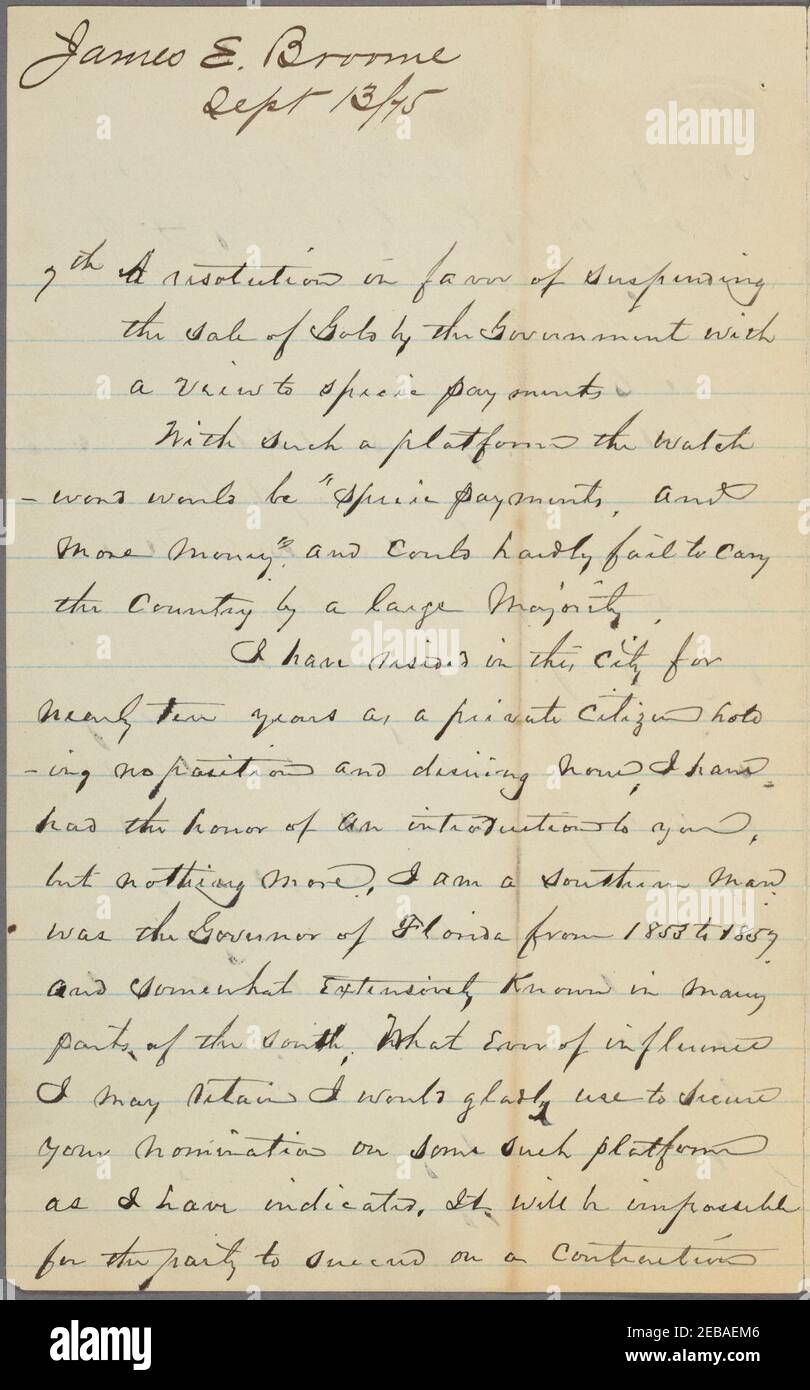 James E. Broome
Sept 13/75
7th A resolution in favor of suspending
the sale of Gold by the Government with
a view to specie payments
With such a platform the watch
-word would be "Specie payments, and
More Money", and could hardly fail to cary
the Country by a large Majority,
I have resided in this, city for
nearly ten years as a private citizen hold
-ing no position and desiring none, I have
had the honor of an introduction to you,
but nothing more, I am a southern Man
was the Governor of Florida from 1853 to 1857
and somewhat Extensively Known in many
parts, of the south, What Ever of influence
I may retain I would gladly use to secure
your nomination on some such platform
as I have indicated, It will be impossible
for the party to succeed on a Contraction
alamy
Image ID: 2EBAEM6
www.alamy.com